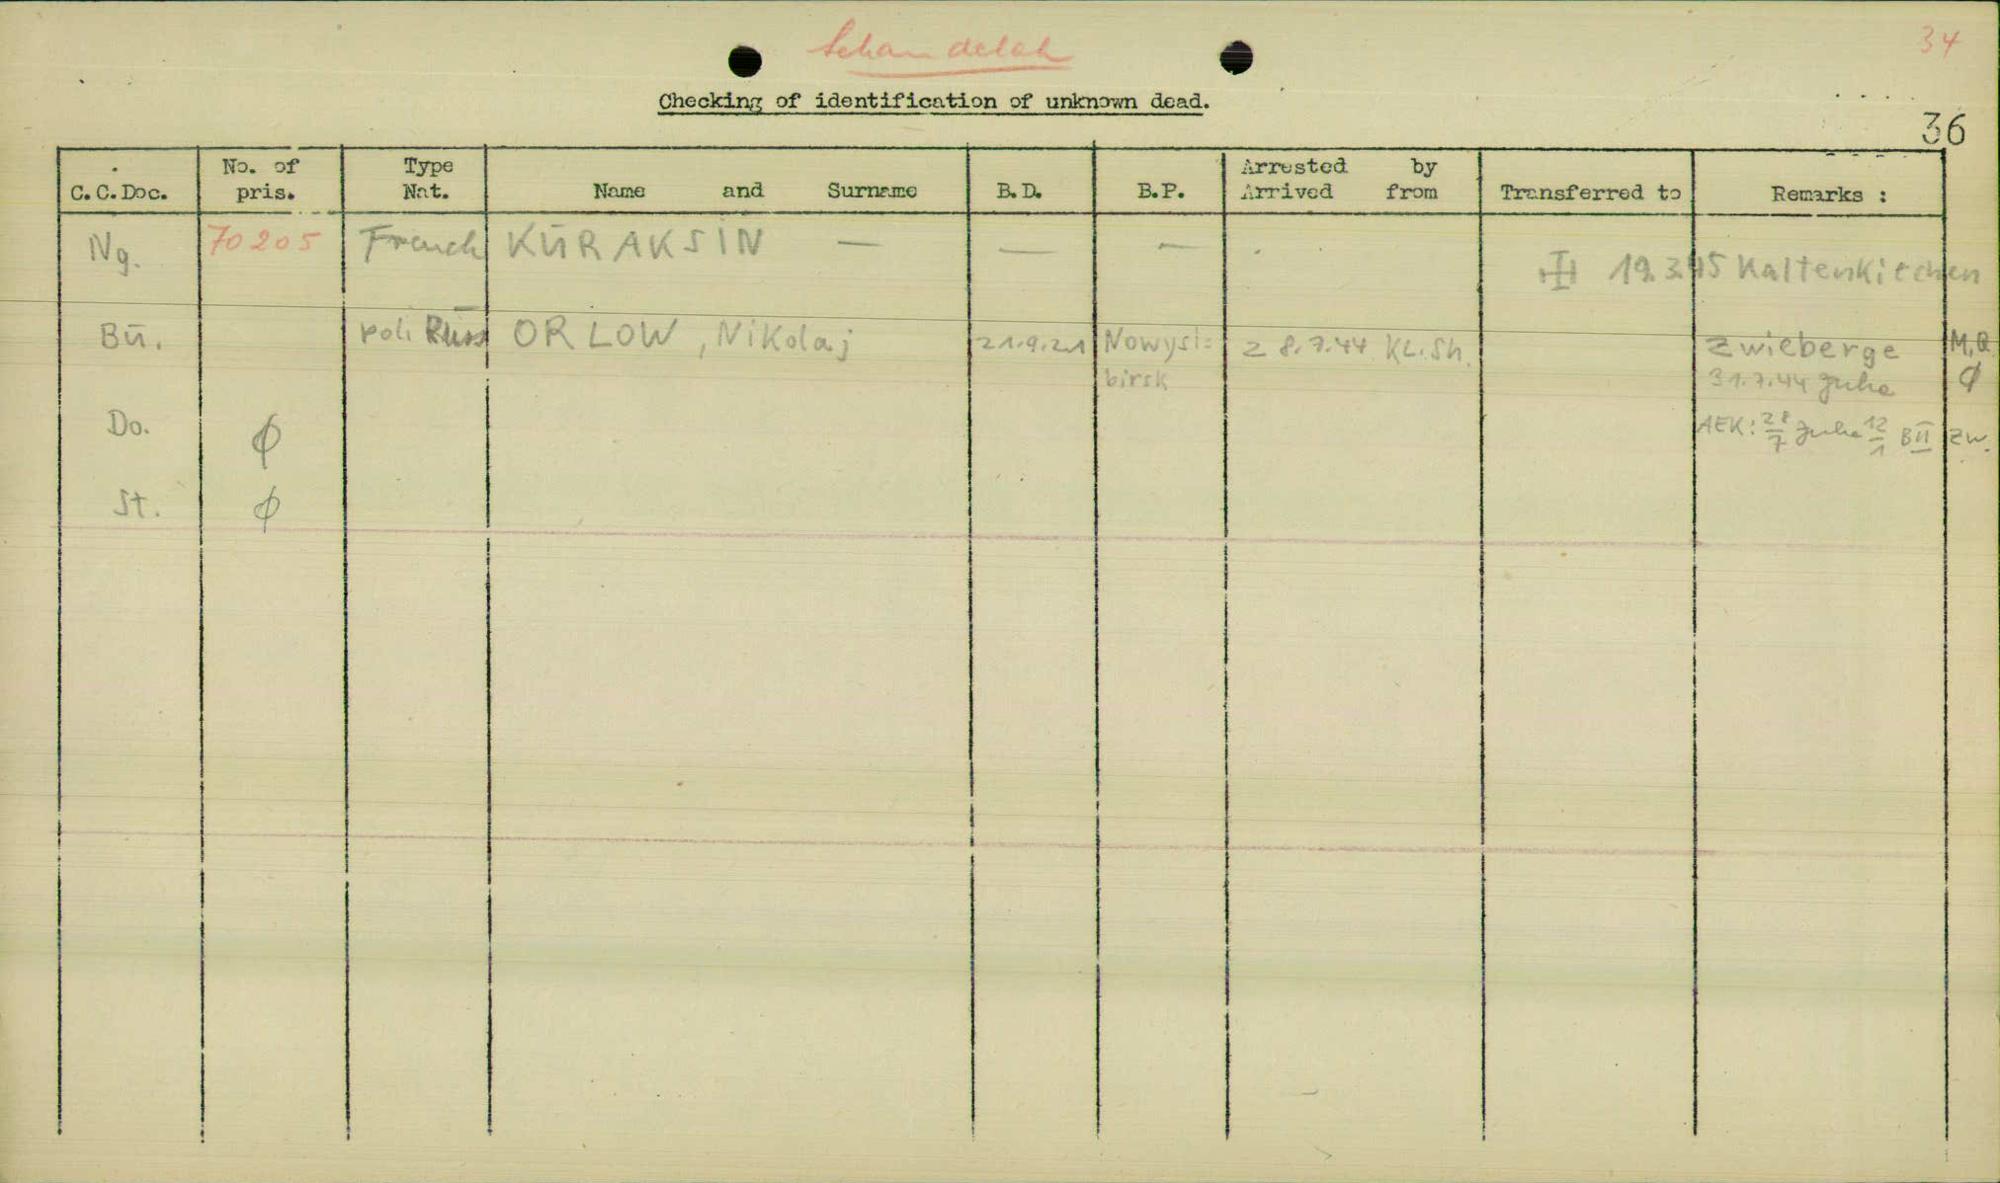 Schandelah
34
Checking of identification of unknown dead.
36
C.C.Doc. No. of pris. Type Nat. Name and Surname B.D. B.P. Arrested by Arrived from Transferred to Remarks :
Ng. 70205 French KŪRAKSIN — — — 19.3.45 Kaltenkirchen
Bū. poli Russ ORLOW, Nikolaj 21.9.21 Nowysi= 28.7.44 KL.Sh. Zwieberge M,Q
birsk 31.7.44 Juha ϕ
Do. ϕ AEK: 28/7 Juha 12/1 BII Zw.
St. ϕ